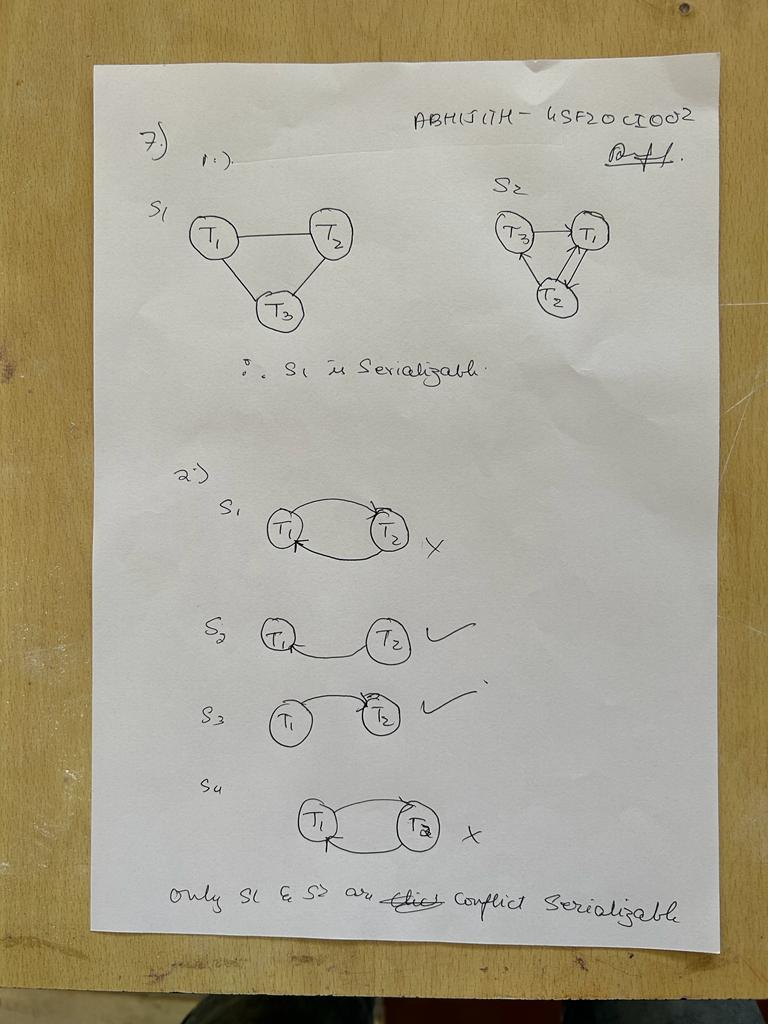 ABHIJITH - 4SF20CI002
7.)
1.)
S1
T1
T2
T3
S2
T3
T1
T2
∴ S1 is Serializable.
2.)
S1
T1
T2
X
S2
T1
T2
✓
S3
T1
T2
✓
S4
T1
T2
X
only S1 & S2 are Conflict Serializable